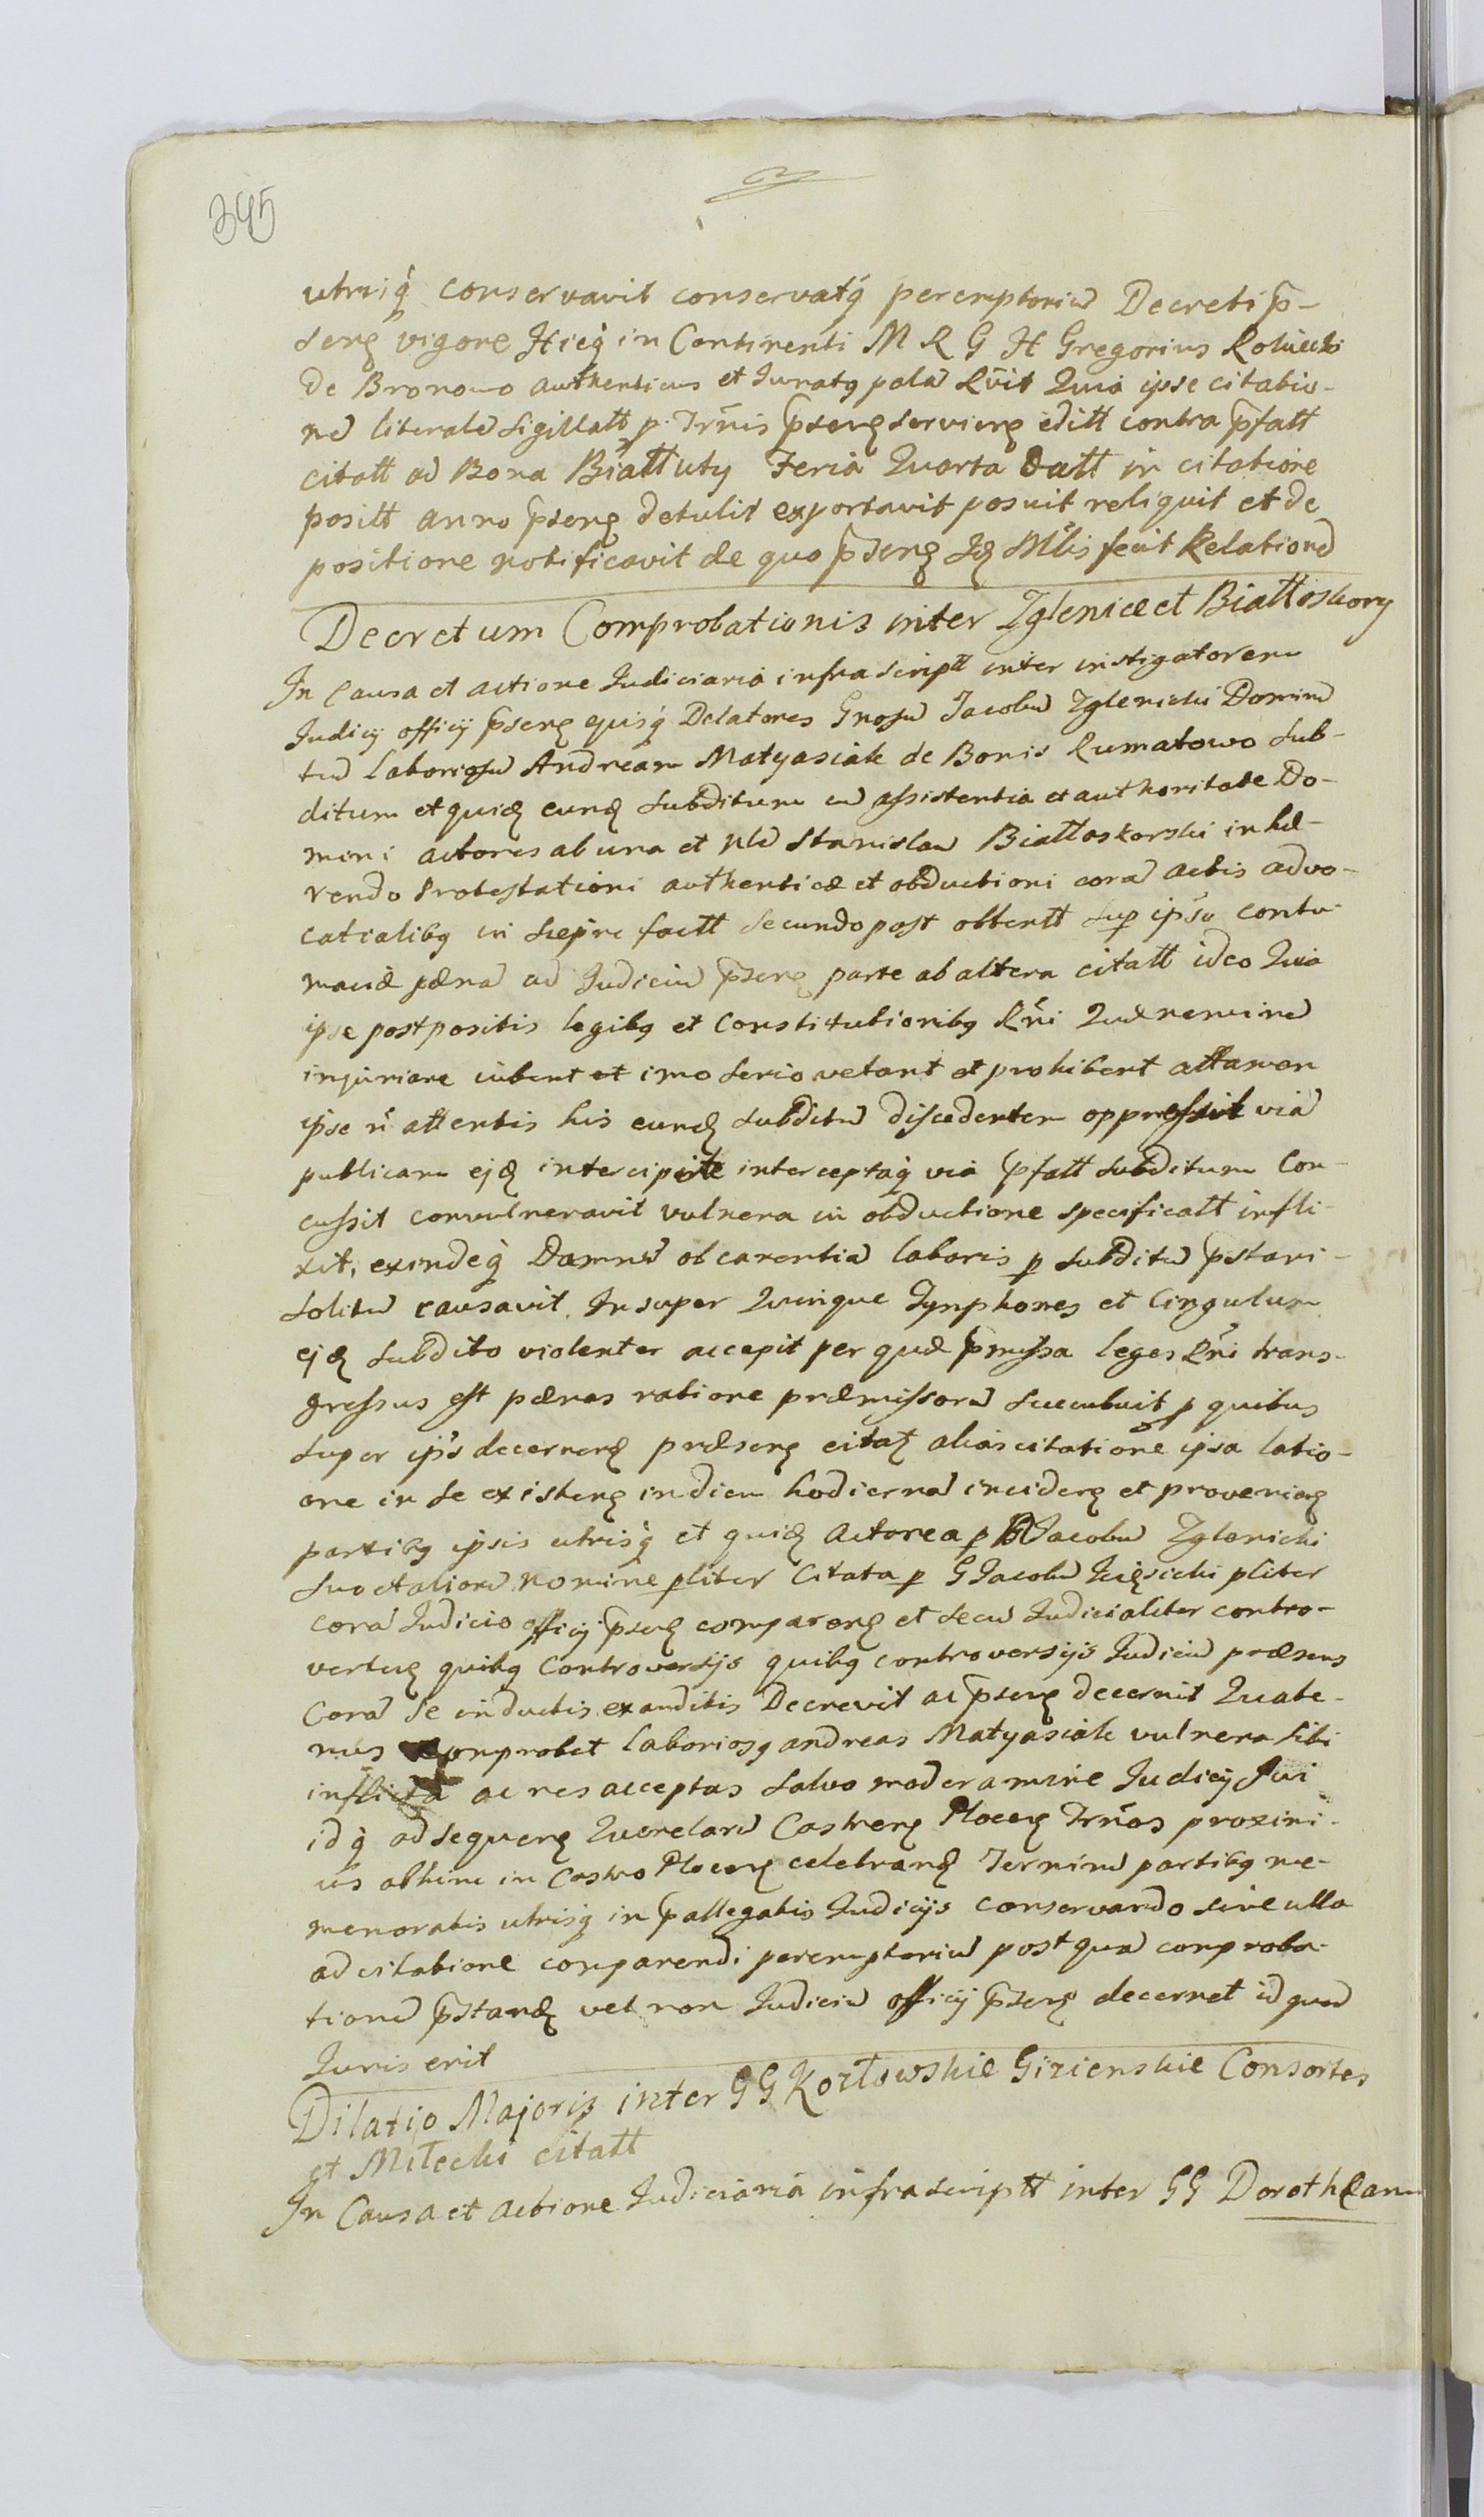 395
utrisq̀ conservavit conservatq̀ peremptoriũ Decreti p̄-
senꝫ vigore Hicq̀ in Continenti M R G H Gregorius Roluecki
de Bronowo authenticus et Juratꝯ palã Rñvit Quia ipse citatio-
nẽ literalẽ sigillatt p Trñis p̄senꝫ servienꝫ editt contra p̄fatt
citatt ad Bona Białłuty Feria Quarta Datt in citatione
positt anno p̄senꝫ detulit exportavit posuit reliquit et de
positione notificavit de quo p̄senꝫ Idꝫ Mlis fecit Relationẽ
Decretum Comprobationis inter Zglenicæ et Białłoskory
In Causa et actione Judiciaria infrascriptt inter instigatorem
Judicij officij p̄senꝫ ejusq̀ Delatores Gnosũ Jacobũ Zglenicki Dominũ
tũ laboriosũ Andream Matyasiak de Bonis Rumatowo sub-
ditum et quidꝫ eundꝫ subditum cũ assistentia et authoritate Do-
mini actores ab una et Nlẽ Stanislaũ Białłoskorski inhæ-
rendo Protestationi authenticæ et obductioni corã actis advo-
catialibꝯ in Sieprc factt secundo post obtentt sup ipso contu-
maciæ pænã ad Judiciũ p̄senꝫ parte ab altera citatt ideo Quia
ipse postpositis legibꝯ et Constitutionibꝯ Rñi Quæ neminẽ
injuriare iubent et imo serio vetant et prohibent attamen
ipse ñ attentis his eundꝫ subditũ discedentem oppressit viã
publicam ejdꝫ intercipiste interceptaq̀ via p̄fatt subditum Con-
cussit convulneravit vulnera in obductione specificatt infli-
xit, exindeq̀ Damnũ ob carentiã laboris p subditũ p̄stari
solitũ causavit. Insuper Quinque Tynphones et Cingulum
ejdꝫ subdito violenter accepit per quæ p̄missa leges Rñi trans-
gressus est pænas ratione præmissorũ succubuit p quibus
super ipso decernenꝫ præsenꝫ citatꝫ alias citatione ipsa latio-
one in se existenꝫ in diem hodiernã incidenꝫ et provenienꝫ
partibꝯ ipsis utrisq̀ et quidꝫ Actorea p G Jacobũ Zglenicki
suo et aliorũ nomine pliter Citata p G Jacobũ pliter
corã Judicio officij p̄senꝫ comparenꝫ et secũ Judicialiter contro-
vertenꝫ quibꝯ Controversijs quibꝯ controversijs Judiciũ præsens
Corã se inductis exauditis Decrevit ac p̄senꝫ decernit Quate-
nus comprobet laboriosꝯ andreas Matyasiak vulnera sibi
inflicta ac res acceptas salvo moderamine Judicij sui
idq̀ ad sequenꝫ Querelarũ Castrenꝫ Plocenꝫ Trños proximi-
us abhinc in Castro Plocenꝫ celebrandꝫ Terminũ partibꝯ me-
menoratis utrisq̀ in p̄allegatis Judicijs conservando sine ulla
ad citatione comparendi peremptoriũ post quã comproba-
tionẽ p̄standꝫ vel non Judiciũ officij p̄senꝫ decernet id quod
Juris erit
Dilatio Majoris inter GG Kozłowskie Girienskie Consortes
et Miłecki citatt
In Causa et actione Judiciaria infrascriptt inter GG Dorotheam